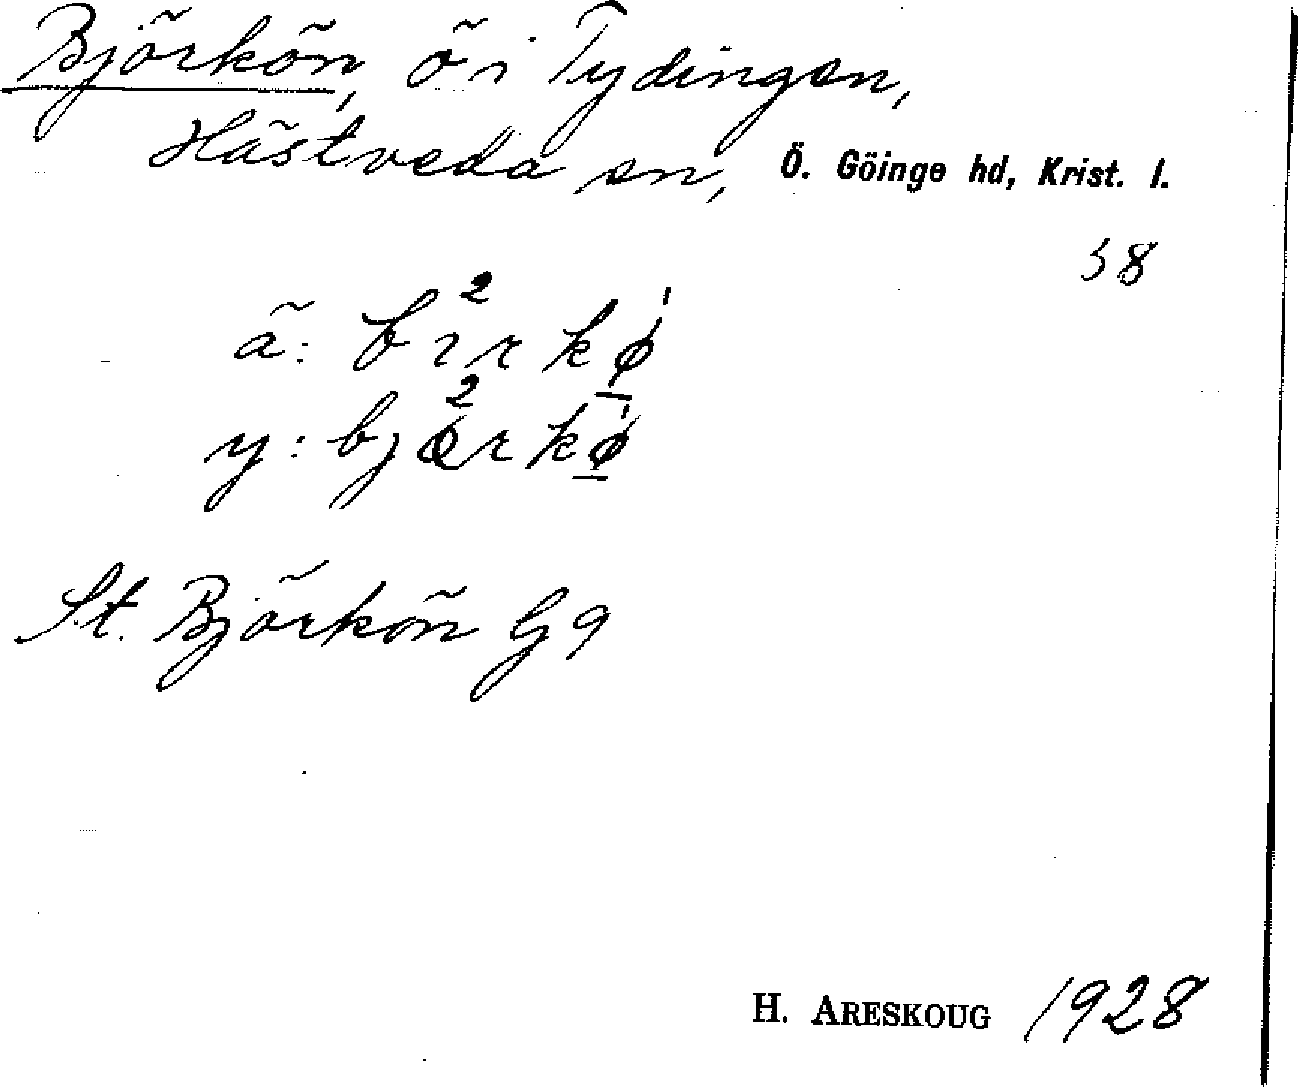 Björkön, ö i Tydingen,
Hästveda sn, Ö. Göinge hd, Krist. l.
58
ä: bɪ²rkø̠ˈ
y: bjæ²rkø̠ˈ
St. Björkön G9
H. ARESKOUG 1928